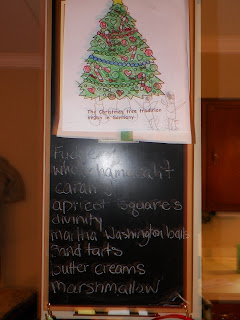 The Christmas tree tradition
began in Germany.
Fudge
apricot Square's
divinity
martha Washington balls
Sand tarts
butter creams
marshmallow